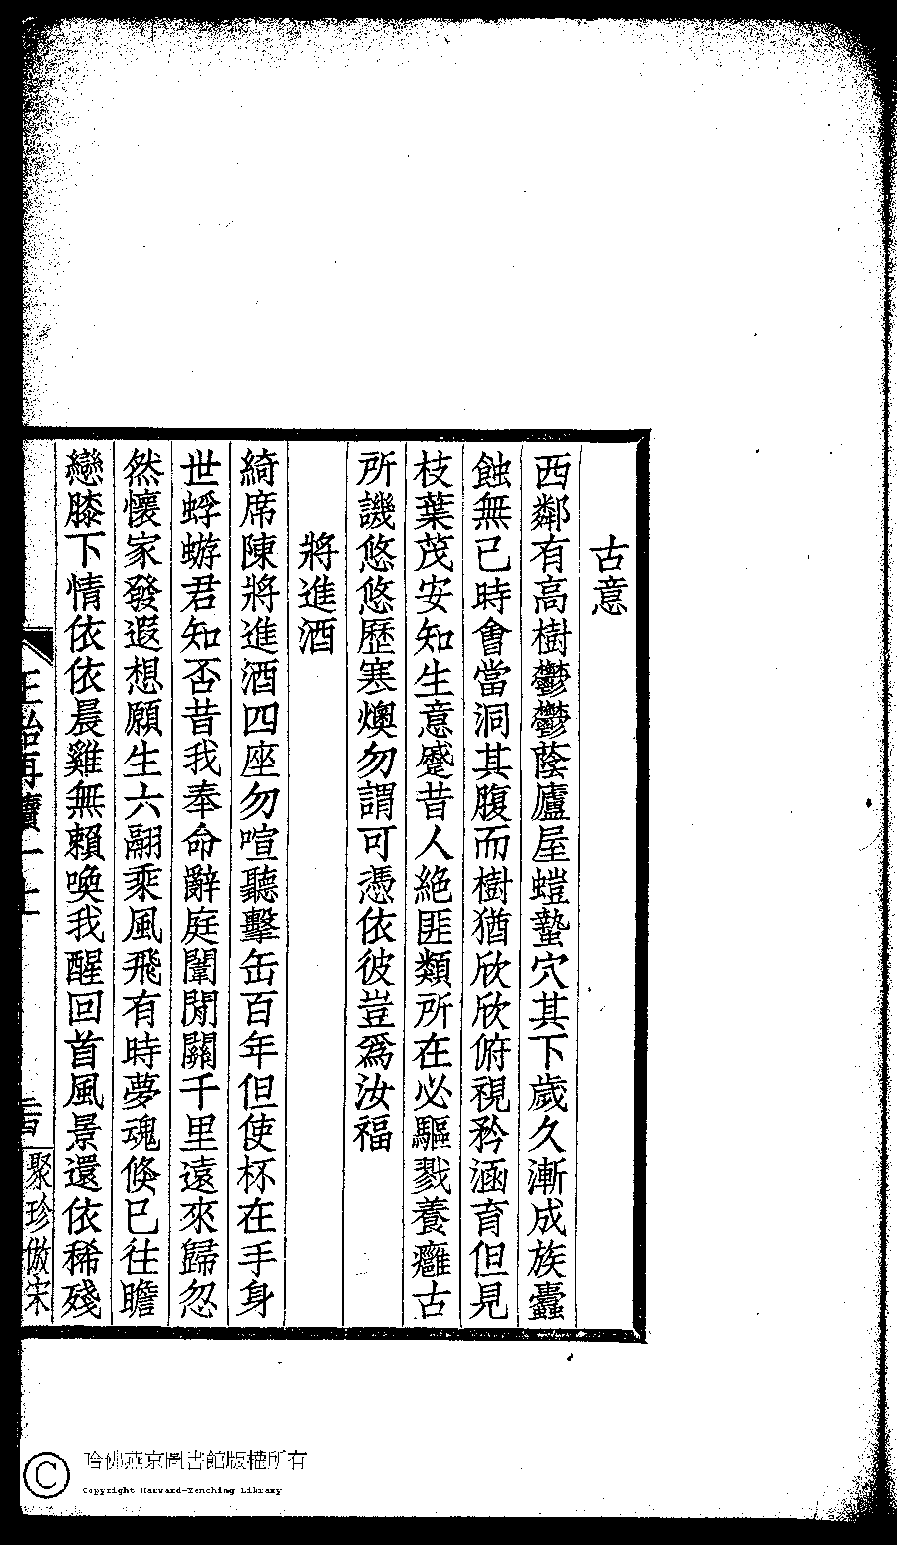 古意
西鄰有高樹鬱鬱蔭廬屋螘蟄穴其下歲久漸成族蠹
蝕無已時會當洞其腹而樹猶欣欣俯視矜涵育但見
枝葉茂安知生意蹙昔人絶匪類所在必驅戮養癰古
所譏悠悠歷寒燠勿謂可憑依彼豈爲汝福
將進酒
綺席陳將進酒四座勿喧聽擊缶百年但使杯在手身
世蜉蝣君知否昔我奉命辭庭闈閒關千里遠來歸忽
然懷家發遐想願生六翮乘風飛有時夢魂倏已往瞻
戀膝下情依依晨雞無賴喚我醒回首風景還依稀殘
聚珍倣宋
哈佛燕京圖書館版權所有
Copyright Harvard-Yenching Library